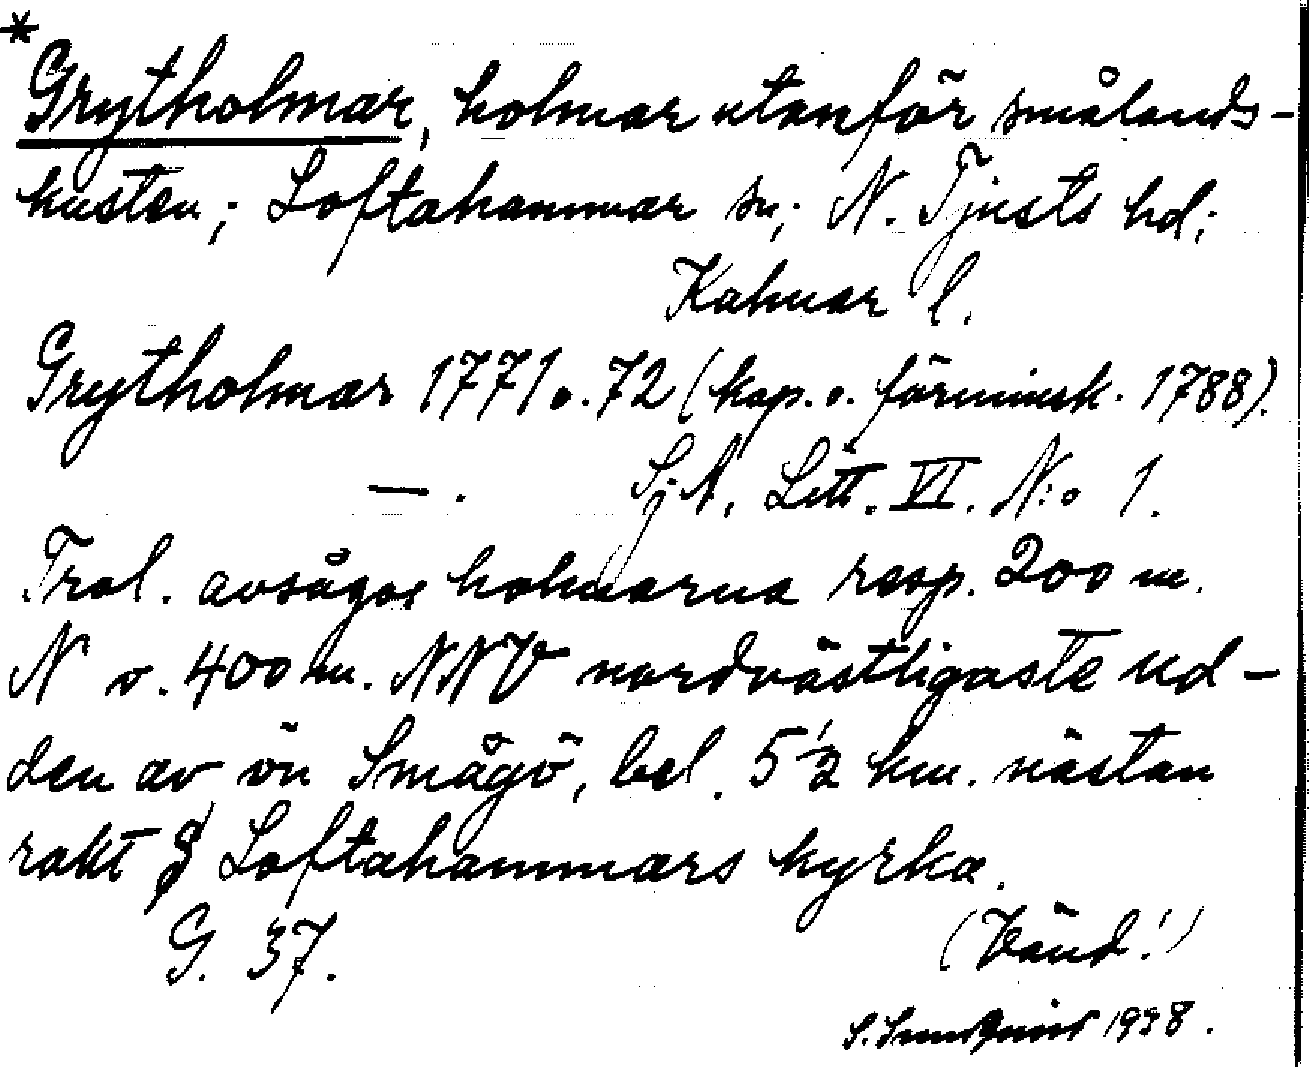 *
Grytholmar, holmar utanför smålands-
kusten; Loftahammar sn; N. Tjusts hd;
Kalmar l.
Grytholmar 1771 o. 72 (kop. o. förminsk. 1788).
—. Sj.A. Litt. VI. N:o 1.
Trol. avsågos holmarna resp. 200 m.
N o. 400 m. NNV nordvästligaste ud-
den av ön Smågö, bel. 5 1/2 km. nästan
rakt S Loftahammars kyrka.
G. 37. (Vänd!)
S. 1938.